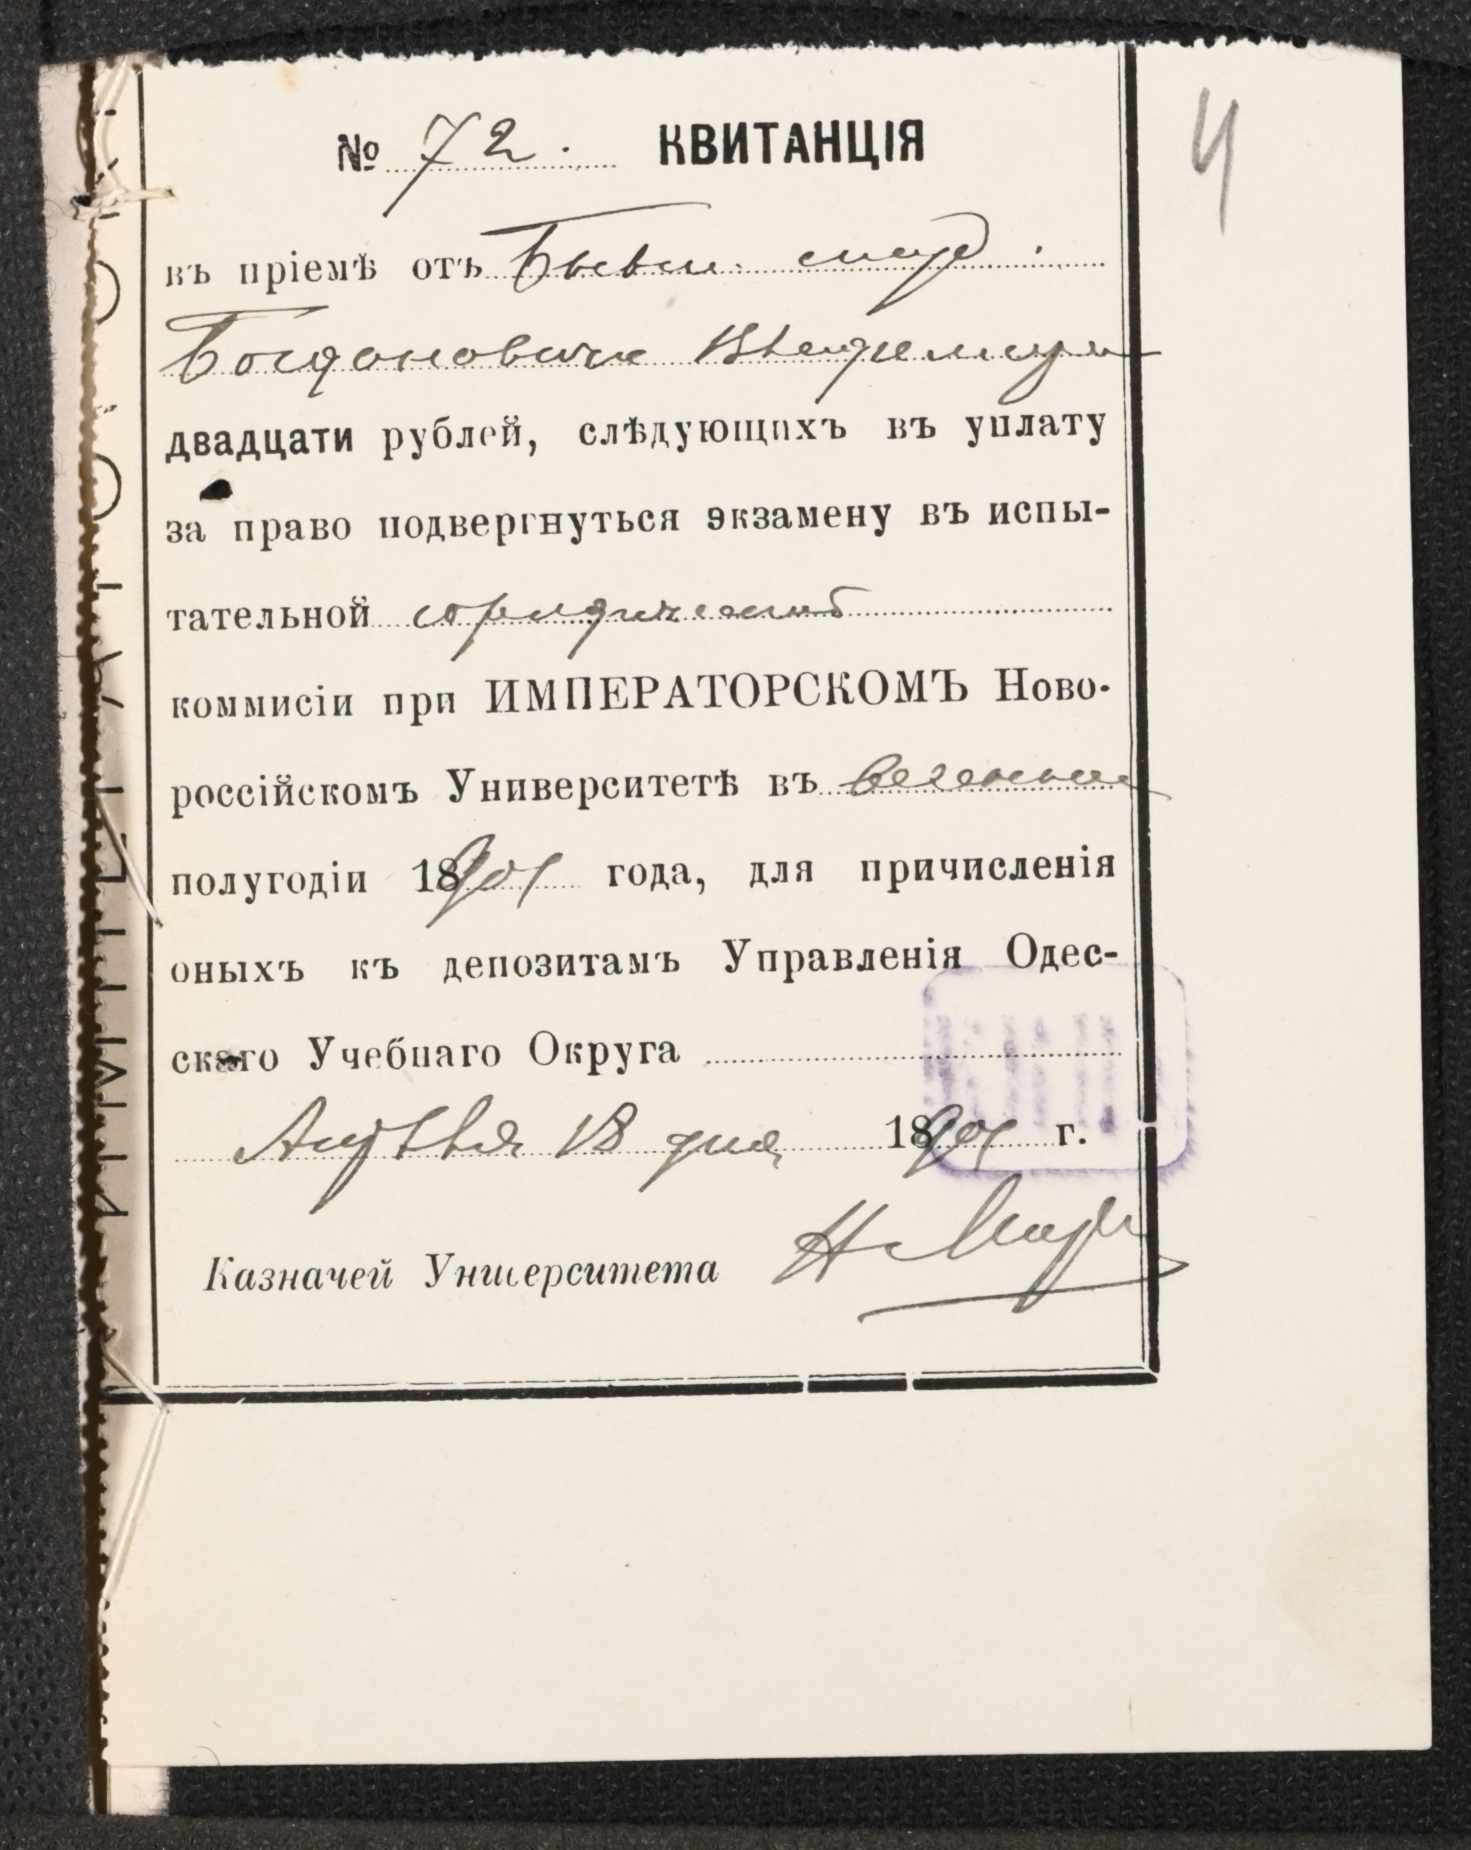 4
№ 72. КВИТАНЦІЯ
въ пріемѣ отъ Бывш. студ.
Богдановича Владимира
двадцати рублей, слѣдующихъ въ уплату
за право подвергнуться экзамену въ испы-
тательной юридической
коммисіи при ИМПЕРАТОРСКОМЪ Ново-
россійскомъ Университетѣ въ весеннем
полугодіи 1901 года, для причисленія
оныхъ къ депозитамъ Управленія Одес-
скаго Учебнаго Округа
Апрѣля 18 дня 1901 г.
Казначей Университета